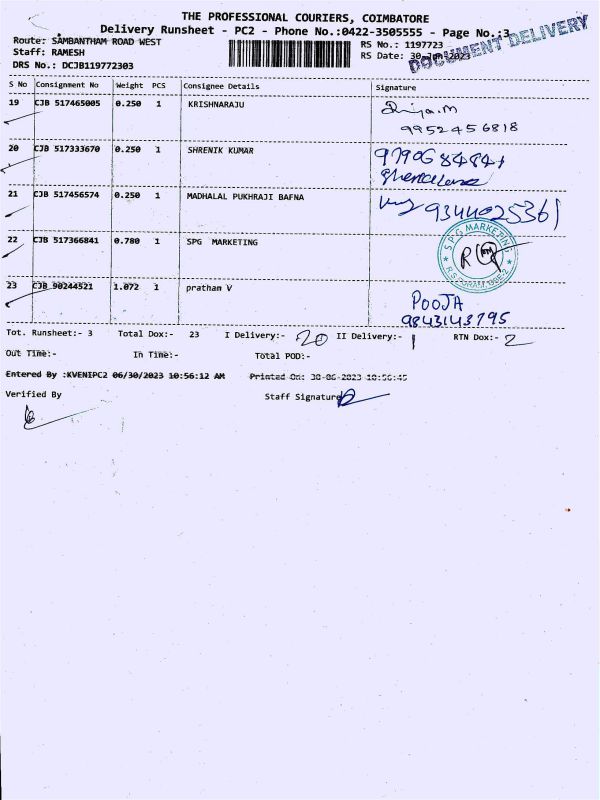 THE PROFESSIONAL COURIERS, COIMBATORE
Delivery Runsheet - PC2 - Phone No.:0422-3505555 - Page No.:3
DOCUMENT DELIVERY
Route: SAMBANTHAM ROAD WEST
Staff: RAMESH
DRS No.: DCJB119772303
RS No.: 1197723
RS Date: 30-Jun-2023
S No Consignment No Weight PCS Consignee Details Signature
19 CJB 517465005 0.250 1 KRISHNARAJU
9952456818
20 CJB 517333670 0.250 1 SHRENIK KUMAR
21 CJB 517456574 0.250 1 MADHALAL PUKHRAJI BAFNA
9344025361
22 CJB 517366841 0.780 1 SPG MARKETING
SPG MARKETING
23 CJB 90244521 1.072 1 pratham V
POOJA
9843143795
Tot. Runsheet:- 3 Total Dox:- 23 I Delivery:- 20 II Delivery:- 1 RTN Dox:- 2
Out Time:- In Time:- Total POD:-
Entered By :KVENIPC2 06/30/2023 10:56:12 AM Printed On: 30-06-2023 10:56:45
Verified By Staff Signature